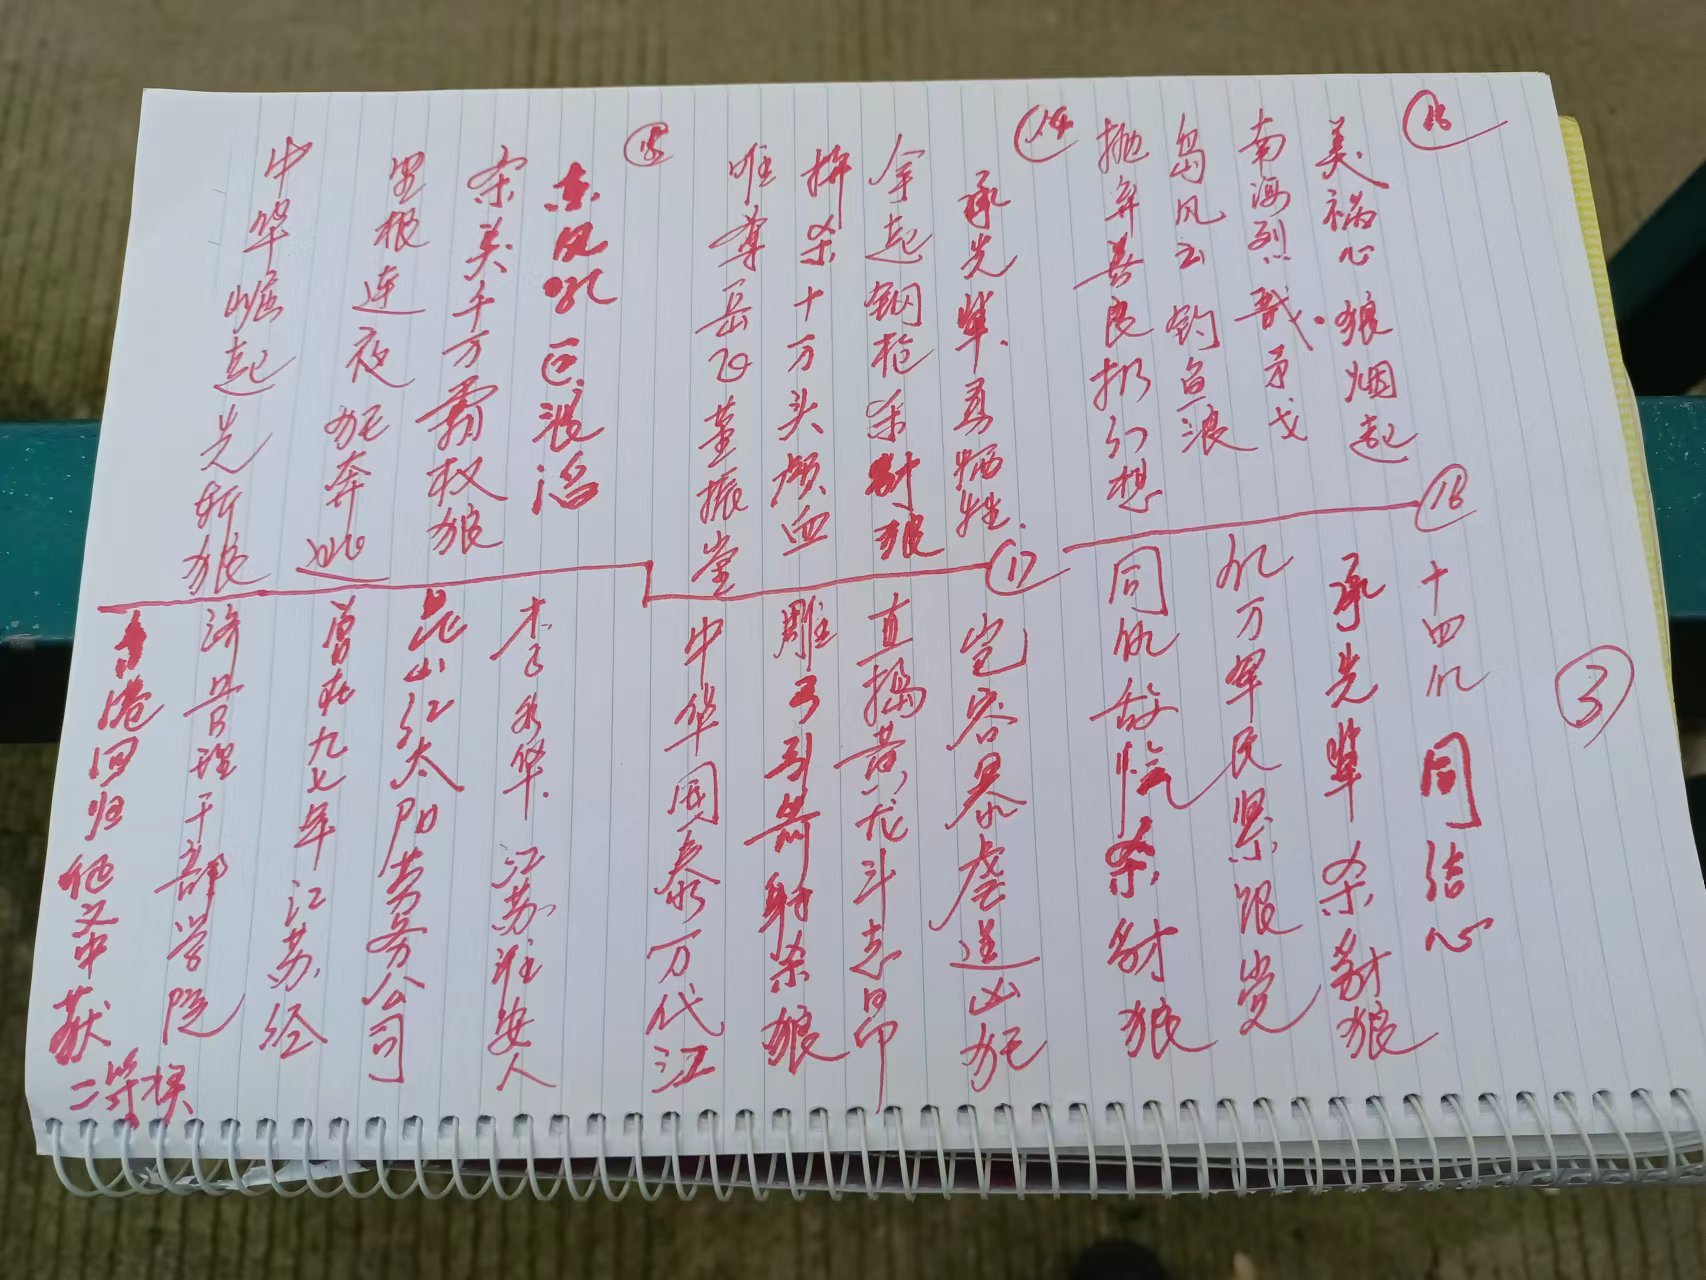 ③
⑬
美祸心狼烟起
南海烈战矛戈
岛风云钓鱼浪
抛弃善良扔幻想
⑭
承先辈.勇牺牲.
拿起钢枪杀豺狼
拚杀十万头颅血
唯尊岳飞董振堂
⑮
东风吹巨浪滔
余美千万霸权狼
里根连夜狂奔
中华崛起先斩狼
⑯
十四亿同结心
承先辈杀豺狼
亿万军民紧跟党
同仇敌忾杀豺狼
⑰
岂容暴虐逞凶狂
直捣黄龙斗志昂
雕弓引箭射杀狼
中华国泰万代江
李永华.江苏淮安人
昆山红太阳劳务公司
曾在九七年江苏经
济管理干部学院
香港回归征文中获
二等奖